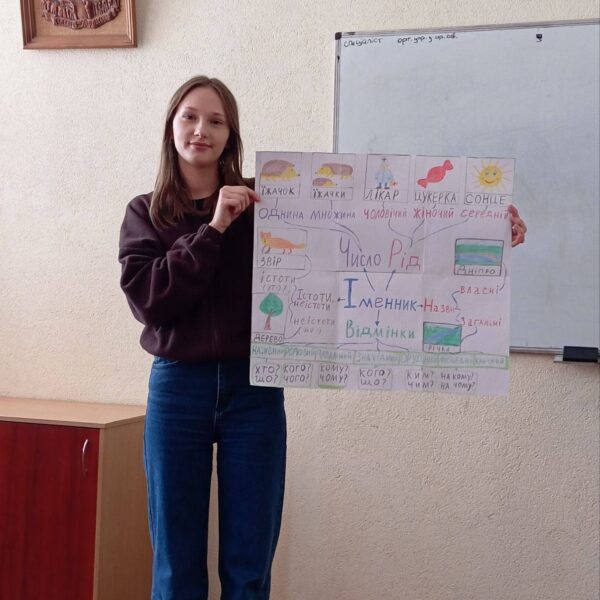 спеціаліст орг. упр. у
ЇЖАЧОК ЇЖАЧКИ ЛІКАР ЦУКЕРКА СОНЦЕ
ОДНИНА МНОЖИНА ЧОЛОВІЧИЙ ЖІНОЧИЙ СЕРЕДНІЙ
Число Рід
ЗВІР
Дніпро
ІСТОТИ
(ХТО?)
Істоти,
неістоти
Іменник
Назви
власні
загальні
неістоти
(що?)
Відмінки
ДЕРЕВО
річка
НАЗИВНИЙ РОДОВИЙ ДАВАЛЬНИЙ ЗНАХІДНИЙ ОРУДНИЙ МІСЦЕВИЙ КЛИЧНИЙ
ХТО? КОГО? КОМУ? КОГО? КИМ? НА КОМУ?
ЩО? ЧОГО? ЧОМУ? ЩО? ЧИМ? НА ЧОМУ?